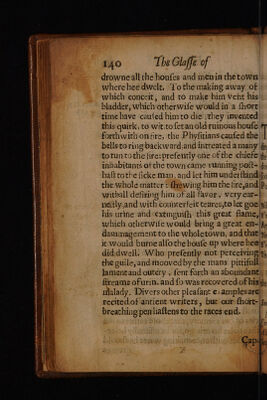 140 The Glasse of
drowne all the houses and men in the town
where hee dwelt. To the making away of
which conceit, and to make him vent his
bladder, which otherwise would in a short
time have caused him to die, they invented
this quirk, to wit, to set an old ruinous house
forthwith on fire, the Physitians caused the
bells to ring backward and intreated a many
to run to the fire: presently one of the chiefe
inhabitants of the town came running post-
hast to the sicke man, and let him understand
the whole matter: shewing him the fire, and
withall desiring him of all favor, very ear-
nestly, and with counterfeit teares, to let goe
his urine and extinguish this great flame,
which otherwise would bring a great en-
dammagement to the whole town, and that
it would burne also the house up where hee
did dwell. Who presently not perceiving
the guile, and mooved by the mans pittifull
lament and outcry, sent forth an aboundant
streame of urin, and so was recovered of his
malady. Divers other pleasant examples are
recited of antient writers, but our short-
breathing pen hastens to the races end.
Cap.